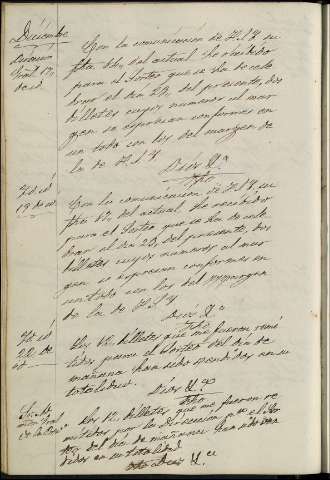 Diciembre
Con la comunicación de V.I. y su
fha. 14, del actual, he recibido
para el Sorteo que se ha de cele
brar el día 23, del presente, dos
billetes cuyos numeros al mar
gen se espresan conformes en
un todo con los del margen de
la de V.I.
Dios &ª
Fho
Id. id
19 de id
Con la comunicación de V.I. su
fha 17, del actual, he recibido
para el Sorteo que se ha de cele
brar el día 23, del presente, dos
billetes cuyos numeros al mar
gen se espresan conformes en
un todo con los del margen
de la de V.I.
Dios &ª
Fho
Id. id
22 de
id
Los 12 billetes que me fueron remi
tidos para el Sorteo del día de
mañana han sido espendidos en su
totalidad.
Dios &ª
Fho
Los 12 billetes, que me fueron re
mitidos por la Dirección para el Sor
teo del día de mañana han sido espen
didos en su totalidad
Dios &ª